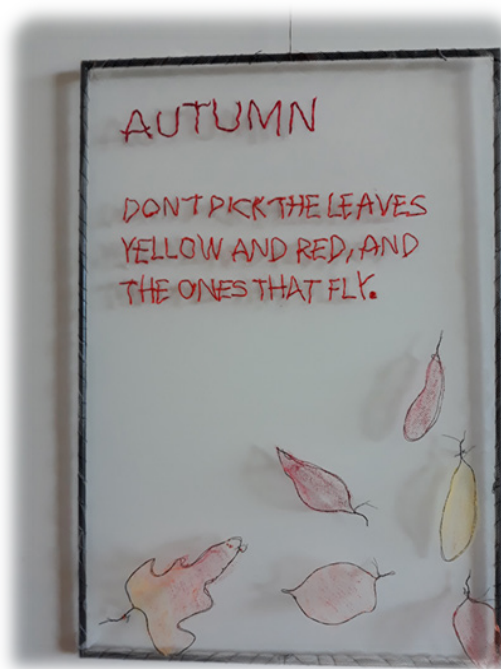 AUTUMN
DONT PICK THE LEAVES
YELLOW AND RED, AND
THE ONES THAT FLY.